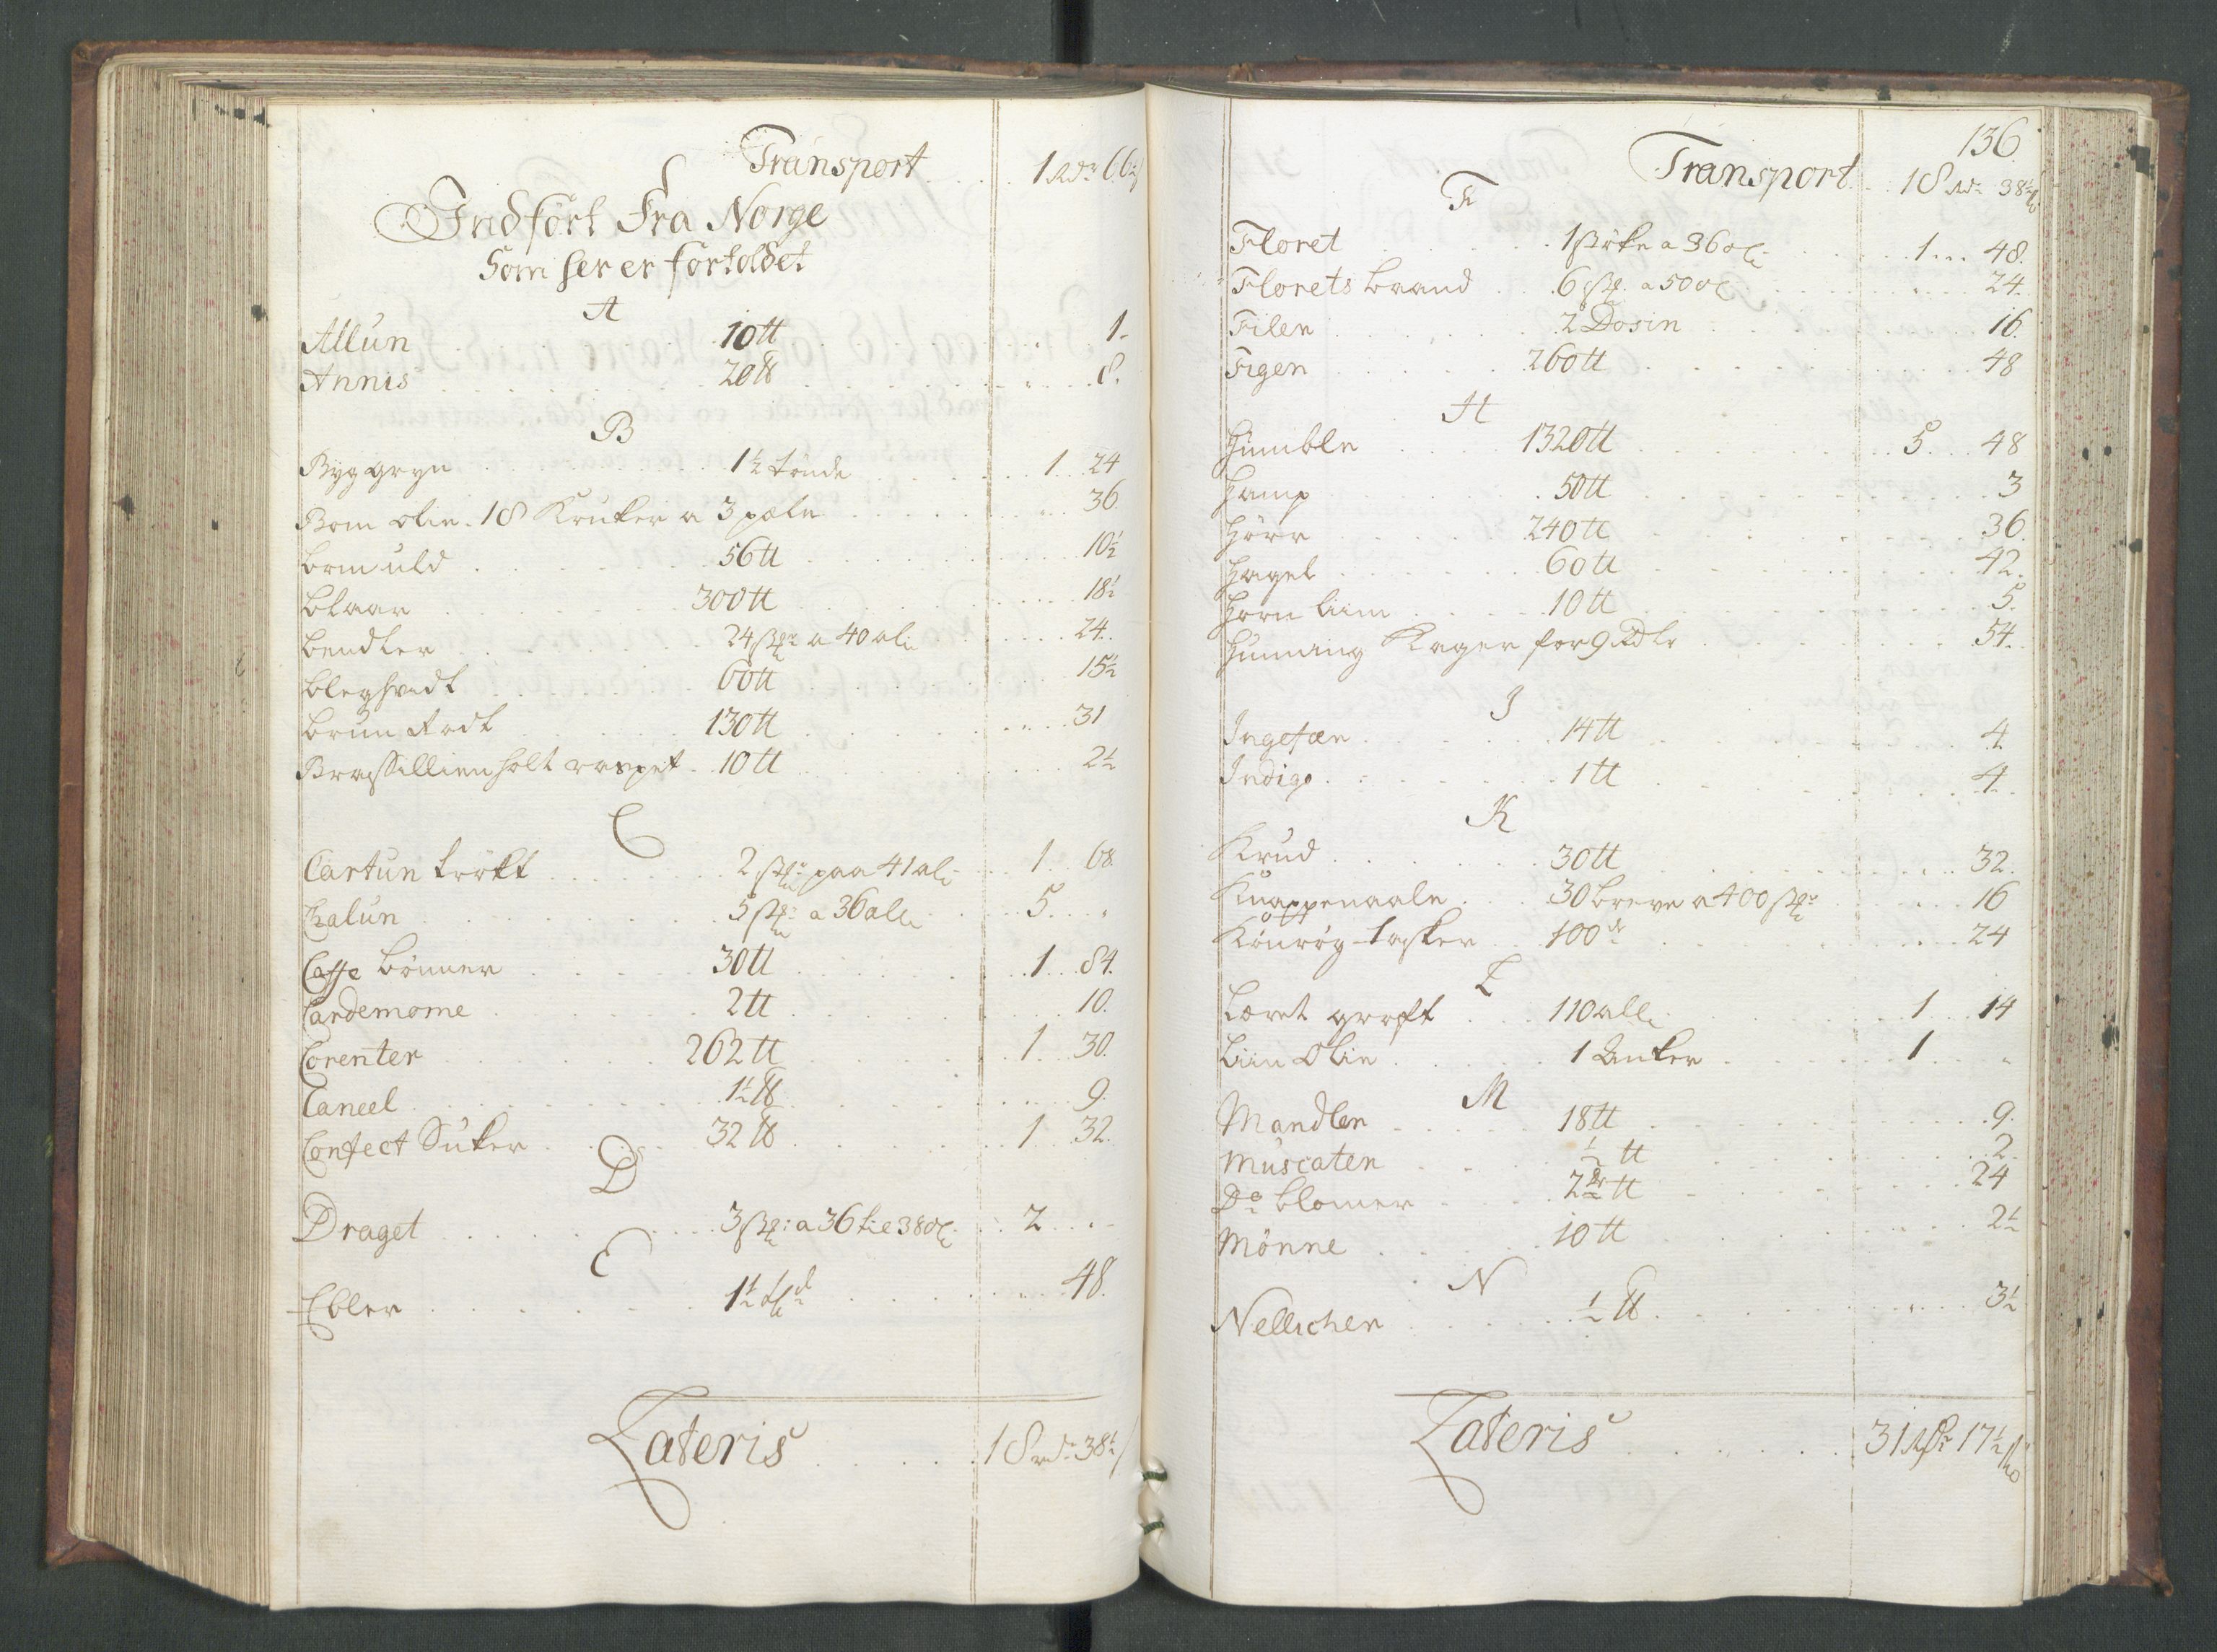 Transport . . . 1 Rdr 66½
Indført Fra Norge
Som her er fortoldet
A
Allun . . . 10 tt . . . 1.
Annis . . . 20 tt . . . 8.
B
Byg gryn . . . 1½ tønde . . . 1 . . 24
Bom olie . 18 Kruker a 3 pæle . . . 36.
bomuld . . . 56 tt . . . 10½
blaar . . . 300 tt . . . 18½
bendler . . . 24 st: a 40 al: . . . 24.
bleghvidt . . . 60 tt . . . 15½
brun Rødt . . . 130 tt . . . 31
Brassillien holt raspet . 10 tt . . . 2½
C
Cartun trökt . . . 2 st: paa 41 al: . . . 1 . . 68.
Chalun . . . 5 st: a 36 all: . . . 5 . . "
Caffe bønner . . . 30 tt . . . 1 . . 84.
Cardemome . . . 2 tt . . . 10.
Corenter . . . 262 tt . . . 1 . . 30.
Caneel . . . 1½ tt . . . 9.
Confect Suker . . . 32 tt . . . 1 . . 32.
D
Draget . . . 3 st: a 36 til 38 al: . . . 2 . . -
E
Ebler . . . 1½ . . . 48.
Lateris . . . 18 rdr 38½
136.
Transport . . 18 Rdr 38½
F
Floret . . . 1 støke a 36 al: . . . 1 . . . 48.
Florets baand . . 6 st: a 50 al: . . . 24.
Filer . . . 2 Dosin . . . 16.
Figen . . . 260 tt . . . 48
H
Humble . . . 1320 tt . . . 5 . . . 48
Hamp . . . 50 tt . . . 3
Hørr . . . 240 tt . . . 36.
Hagel . . . 60 tt . . . 42.
Horn liim . . . 10 tt . . . 5.
Hunning Kager for 9 Rdlr . . . 54.
I
Ingefær . . . 14 tt . . . 4.
Indigo . . . 1 tt . . . 4.
K
Krud . . . 30 tt . . . 32.
Knappenaale . . . 30 breve a 400 st: . . . 16
Kønrøg tasker . . 100 . . . 24
L
Læret groft . . . 110 all: . . . 1 . . 14
Liin Olie . . . 1 Anker . . . 1 . . "
M
Mandler . . . 18 tt . . . 9.
Muscaten . . . ½ tt . . . 2.
Do blomer . . . 2 tt . . . 24
Mønne . . . 10 tt . . . 2½
N
Nellicher . . . ½ tt . . . 3½
Lateris . . . 31 Rdr 17½